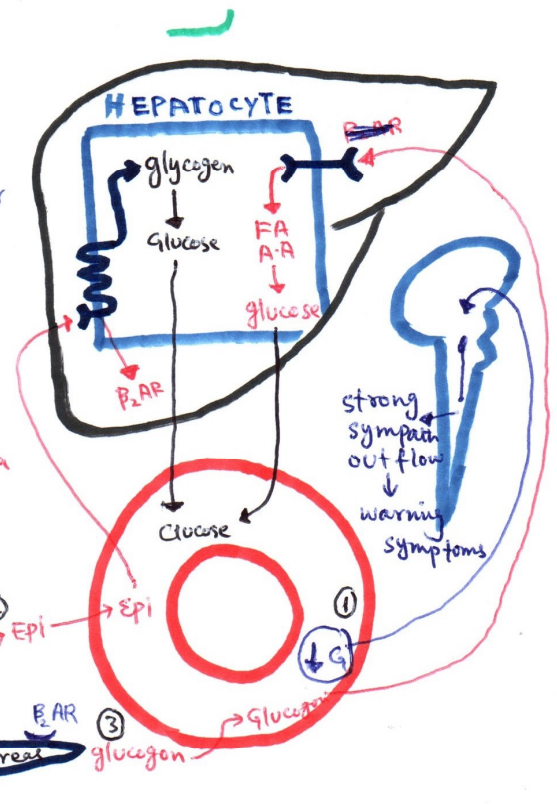 HEPATOCYTE
glycogen
Glucose
FA
A-A
glucose
β₂AR
strong
sympath
outflow
warning
symptoms
Glucose
Epi
Epi
1
↓ G
β₂AR
3
glucogon
Glucogon
reas